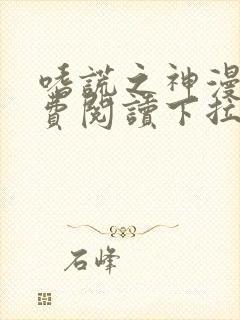 嗜謊之神漫
費閱讀下拉
石峰